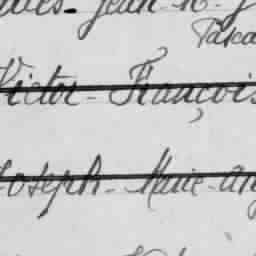 Jean-
Pasca
Victor- François
Joseph- Marie- An